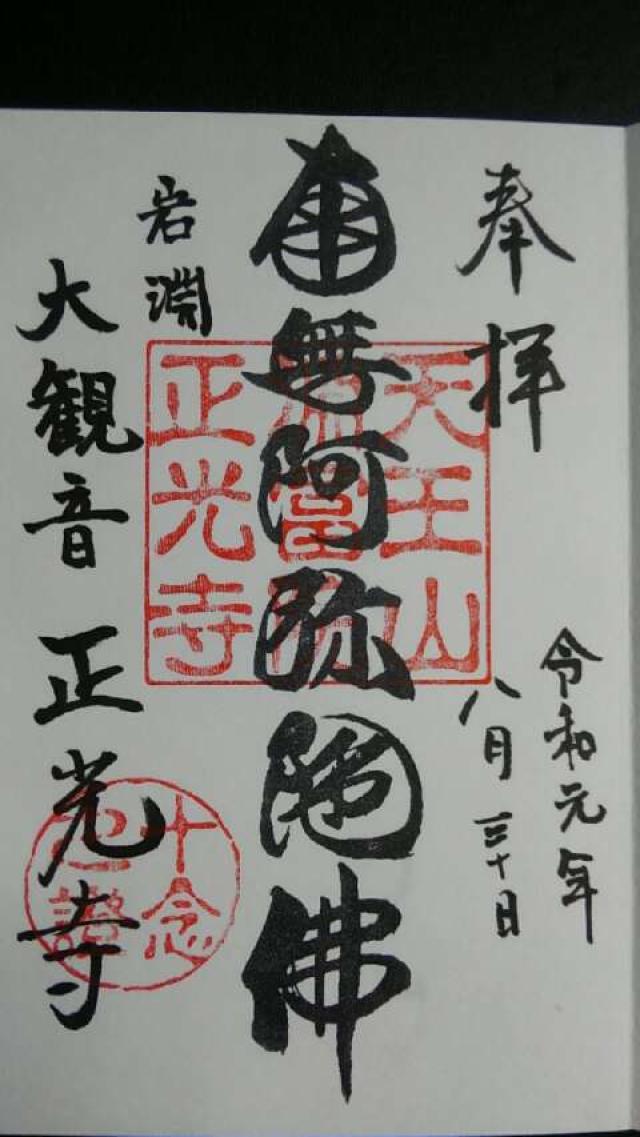 奉拝
令和元年
八月三十日
南無阿弥陀佛
岩淵
大観音 正光寺
天王山
正光寺
十念
之證